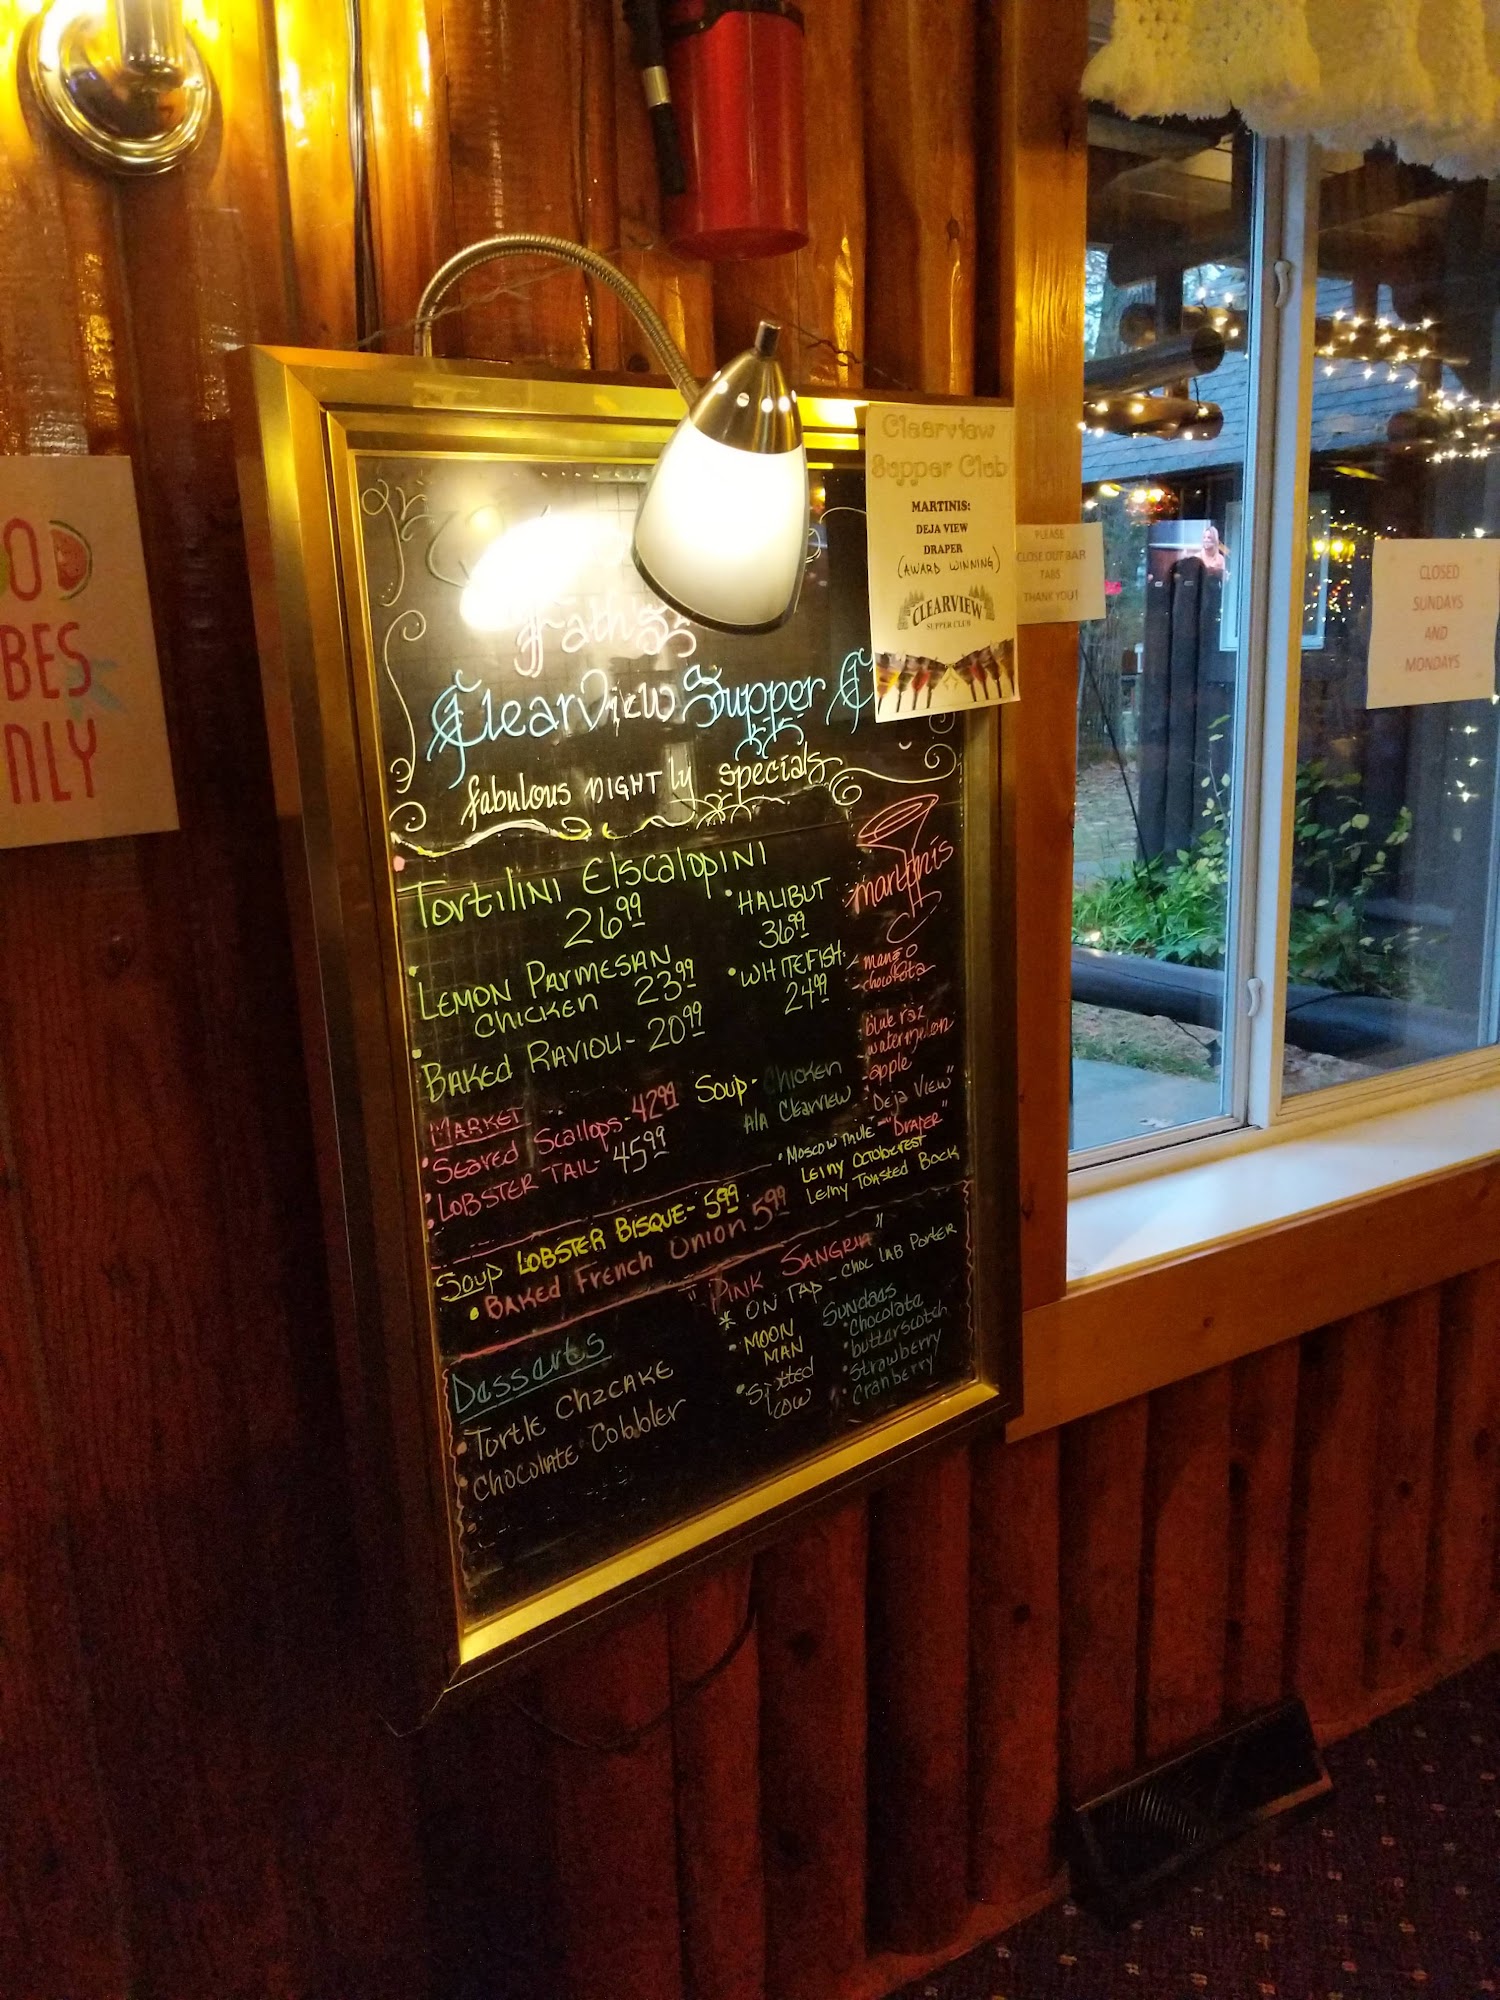 OD
BES
NLY
Clearview
Supper Club
MARTINIS:
DEJA VIEW
DRAPER
(AWARD WINNING)
CLEARVIEW
SUPPER CLUB
PLEASE
CLOSE OUT BAR
TABS
THANK YOU!
CLOSED
SUNDAYS
AND
MONDAYS
ClearView Supper
fabulous NIGHTly specials
TortilINI ElscalopINI
26.99
• LEMON PARMESAN
CHICKEN 23.99
• BAKED RAVIOLI - 20.99
• HALIBUT
36.99
• WHITEFISH.
24.99
martinis
- mango
- chocolata
- blue raz
- watermelon
- apple
"Deja View"
- "DRAPER"
MARKET
• SEARED Scallops - 42.99
• LOBSTER TAIL - 45.99
Soup - CHICKEN
A/A Clearview
• Moscow Mule
Leiny Octoberest
Leiny Toasted Bock
Soup LOBSTER BISQUE - 5.99
• BAKED French Onion 5.99
"PINK SANGRIA"
* ON TAP - CHOC LAB PORTER
• MOON
MAN
• Spotted
COW
Sundaes
• Chocolate
• butterscotch
• Strawberry
• Cranberry
Desserts
• Turtle CHZCAKE
• CHOCOLATE Cobbler